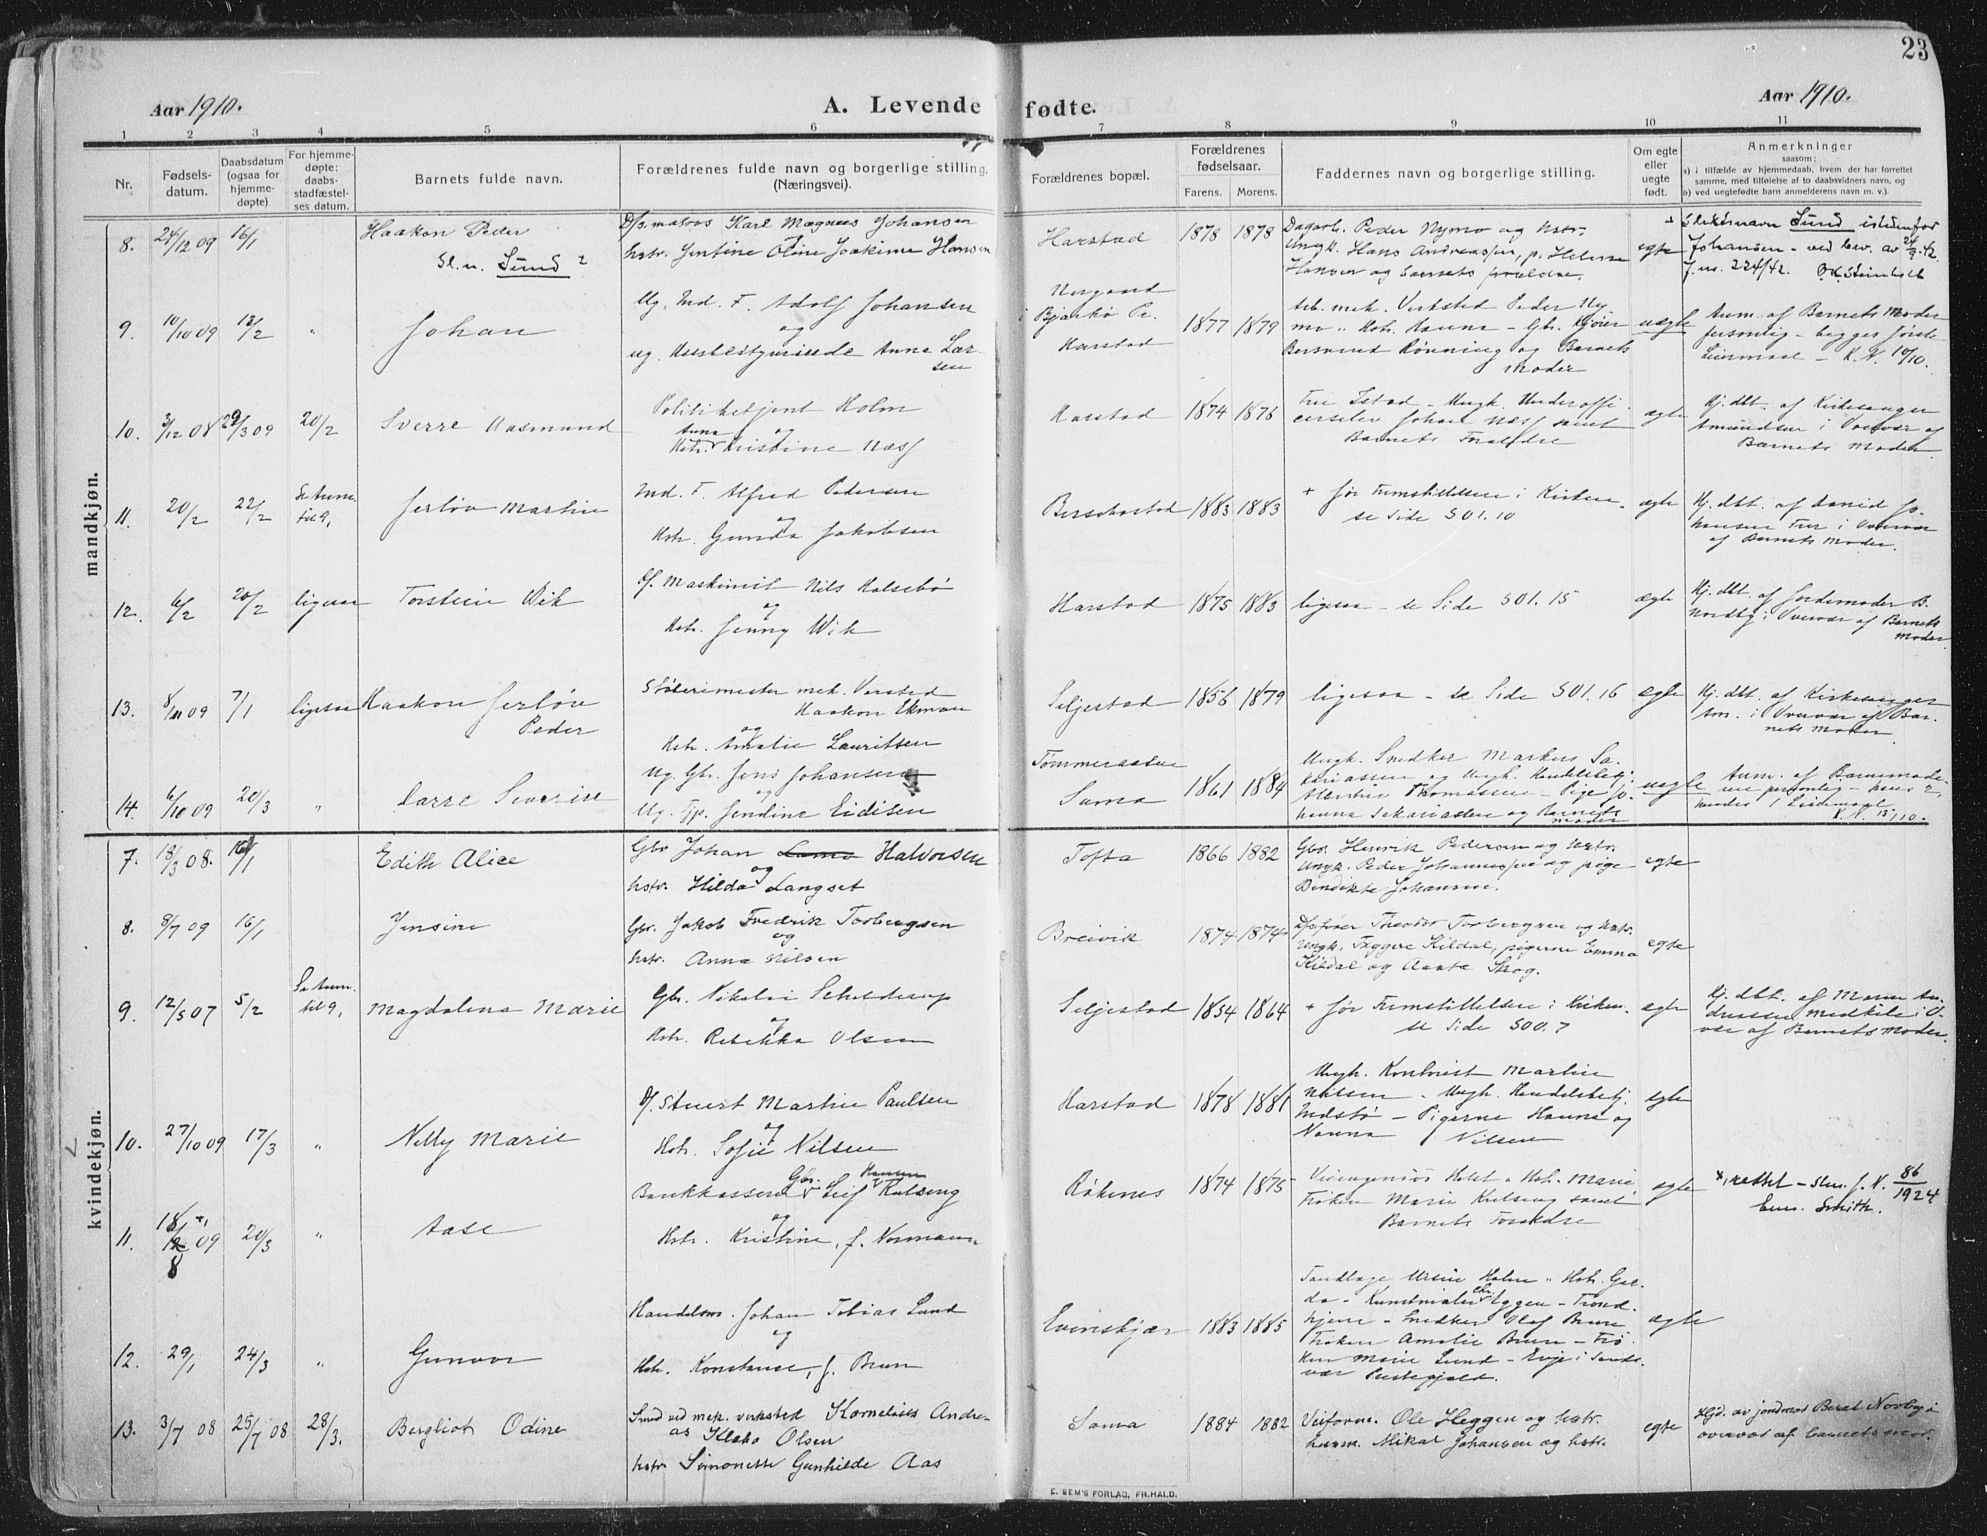 23
Aar 1910.
A. Levende fødte.
Aar 1910.
1 2 3 4 5 6 7 8 9 10 11
Nr.
Fødsels-
datum.
Daabsdatum
(ogsaa for
hjemme-
døpte)
For hjemme-
døpte:
daabs-
stadfæstel-
ses datum.
Barnets fulde navn.
Forældrenes fulde navn og borgerlige stilling.
(Næringsvei).
Forældrenes bopæl.
Forældrenes
fødselsaar.
Farens. Morens.
Faddernes navn og borgerlige stilling.
Om egte
eller
uegte
født.
Anmerkninger
saasom:
a) i tilfælde av hjemmedaab, hvem der har forrettet
samme, med tilføielse af to daabsvidners navn, og
b) ved uegtefødte barn anmelderens navn m. v.).
mandkjøn.
8. 24/12 09 16/1
Haakon Peder
Sl.n. Sund
Dfs.matros Karl Magnus Johansen
hstr. Jentine Oline Joakime Hansen
Harstad
1878 1878
Dagarb. Peder Nymo og hstr.
Ungk. Hans Andreassen, p. Helene
Hansen og barnets forældre.
egte
+ Slektsnavn Sund istedenfor
Johansen - ved bev. av 24/9.42.
J.nr. 224/42.
9. 10/10 09 13/2 "
Johan
Ug. Ind. F. Adolf Johansen
og
ug. Husbestyrerinde Anna Lar-
sen
i Bjarkø Pr.
Harstad
1877 1879
Arb. mek. Verksted Peder Ny
mo " Hstr. Hanna - Gbr. Kjøier
Bersvend Rønning og Barnets
Moder
uægte
Anm. af Barnets Moder
personlig - begges første
Leiermaal - K. N. 10/10.
10. 3/12 08 29/3 09 20/2
Sverre Aasmund
Politibetjent Holm
og
Hstr. Anna Kristine Næss
Harstad
1874 1876
Fru Istad - Ungk. Underoffi-
cerselev Johan Næss samt
Barnets Forældre
ægte
Hj. dbt. af Kirkesanger
Amundsen i Overvær af
Barnets Moder
11. 20/2 22/2
Se Anm.
til 9,
Jerløv Martin
Ind. F. Alfred Pedersen
og
Hstr. Gunda Jakobsen
Bersebostad
1883 1883
+ før Fremstillelsen i Kirken
se Side 501.10
ægte
Hj. dbt. af David Jo-
hansen Fur i Overvær
af Barnets Moder.
12. 6/2 20/2 ligesaa
Torstein Wik
D/. Maskinist Nils Kalsebø
og
Hstr. Jenny Wik
Harstad
1875 1883
ligesaa - se Side 501.15
ægte
Hj. dbt. af Jordemoder B.
Nordby i Overvær af Barnets
Moder
13. 8/11 09 7/1 ligesaa
Haakon Jerløv
Peder
Støberimester mek. Versted
Haakon Ekman
og
Hstr. Amalie Lauritsen
Seljestad
1856 1879
ligesaa - se Side 501.16
ægte
Hj. dbt. af Kirkesanger
Am. i Overvær af Bar-
nets Moder
14. 6/10 09 20/3 "
Lasse Severin
Ug. Gbr. Jens Johansen
og
Ug. Tjp. Jendine Eidisen
Tømmeraasen
Sama
1861 1884
Ungk. Snedker Markus Sa-
kariassen og Ungk. Handelsbetj.
Martin Thomassen - Pige Jo-
hanna Sakariassen og Barnets
Moder
uægte
Anm. af Barnemode-
ren personlig - hans 2,
hendes 1 Leiermaal
K. N. 13/10.
kvindekjøn.
7. 18/3 08. 16/1
Edith Alice
Gbr Johan Lamo Halvorsen
og
hstr. Hilda Langset
Tofta
1866 1882
Gbr. Henrik Pedersen og hstr.
Ungk. Peder Johannessen og pige
Bendikte Johansen.
egte
8. 8/7 09 16/1
Jensine
Gbr. Jakob Fredrik Torbergsen
og
hstr. Anna Nilsen
Breivik
1874 1874
Dfs.fører Theodor Torbergsen og hstr.
Ungk. Tryggve Kildal, pigerne Emma
Kildal og Aasta Skog.
egte
9. 12/5 07 5/2
Se Anm.
til 9,
Magdalena Marie
Gbr. Nikolai Schelderup
og
Hstr. Rebekka Olsen
Seljestad
1854 1864
+ før Fremstillelsen i Kirken
se Side 500.7
ægte
Hj. dbt. af Maren An-
dreassen Medkile i O-
vær af Barnets Moder.
10. 27/10 09 17/3 "
Nelly Marie
D/. Stuert Martin Paulsen
og
Hstr. Sofie Nilsen
Harstad
1878 1881
Ungk. Kontorist Martin
Nilsen - Ungk. Handelsbetj.
Indstø - Pigerne Hanna og
Nanna Nilsen
egte
11. 18/8 09 20/3 "
Aase
Bankkasserer Gbr. Leif Hansen Kulseng
og
Hstr. Kristine, f. Normann
Røkenes
1874 1875
Veiingeniør Holst - Hstr. Marie
Frøken Marie Kulseng samt
Barnets Forældre
ægte
+, rettet - skr. f. K. 86/1924
Em. Smith.
12. 29/1 24/3 "
Gunvor
Handelsm. Johan Tobias Lund
og
Hstr. Konstanse, f. Brun
Evinskjær
1883 1885
Tandlæge Ursin Holm " Hstr. Ger-
da - Kunstmaler Chr. Eggen - Trond-
hjem - Snedker Olaf Brun
Frøken Amalie Brun - Frø-
ken Marie Lund - Evje i Sands-
vær Prestegjeld.
ægte
13. 3/7 08 25/7 08 28/3.
Bergliot Odine
Smed ved mek. verksted Kornelius Andre-
as Klæbo Olsen
hstr Simonette Gunhilde Aas
Sama
1884 1882
Veiforvn. Ole Heggen og hstr.
hanm. Mikal Johansen og hstr.
egte
Hjd. av jordmor Berat Nordby i
overvær af barnets mor.
E. SEM'S FORLAG, FR.HALD.